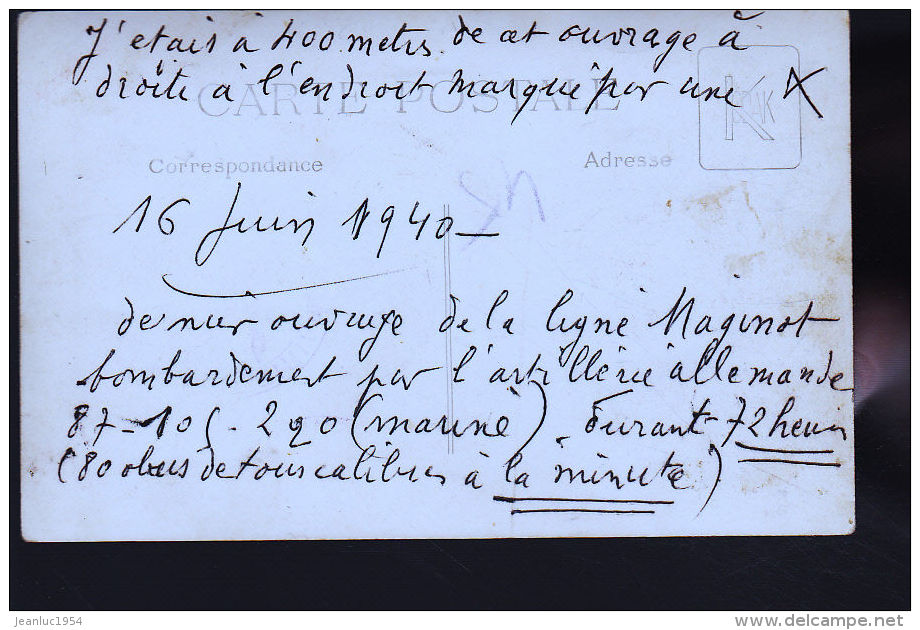 J'etais à 400 metrs de cet ouvrage à
droite à l'endroit marqué par une X
CARTE POSTALE
KODAK
Correspondance
Adresse
16 Juin 1940
dernier ouvrage de la ligne Maginot
bombardement par l'artillerie allemande
87-105-290 (marine) durant 72 heures
(80 obus de tous calibres à la minute)
jeanluc1954
www.delcampe.net